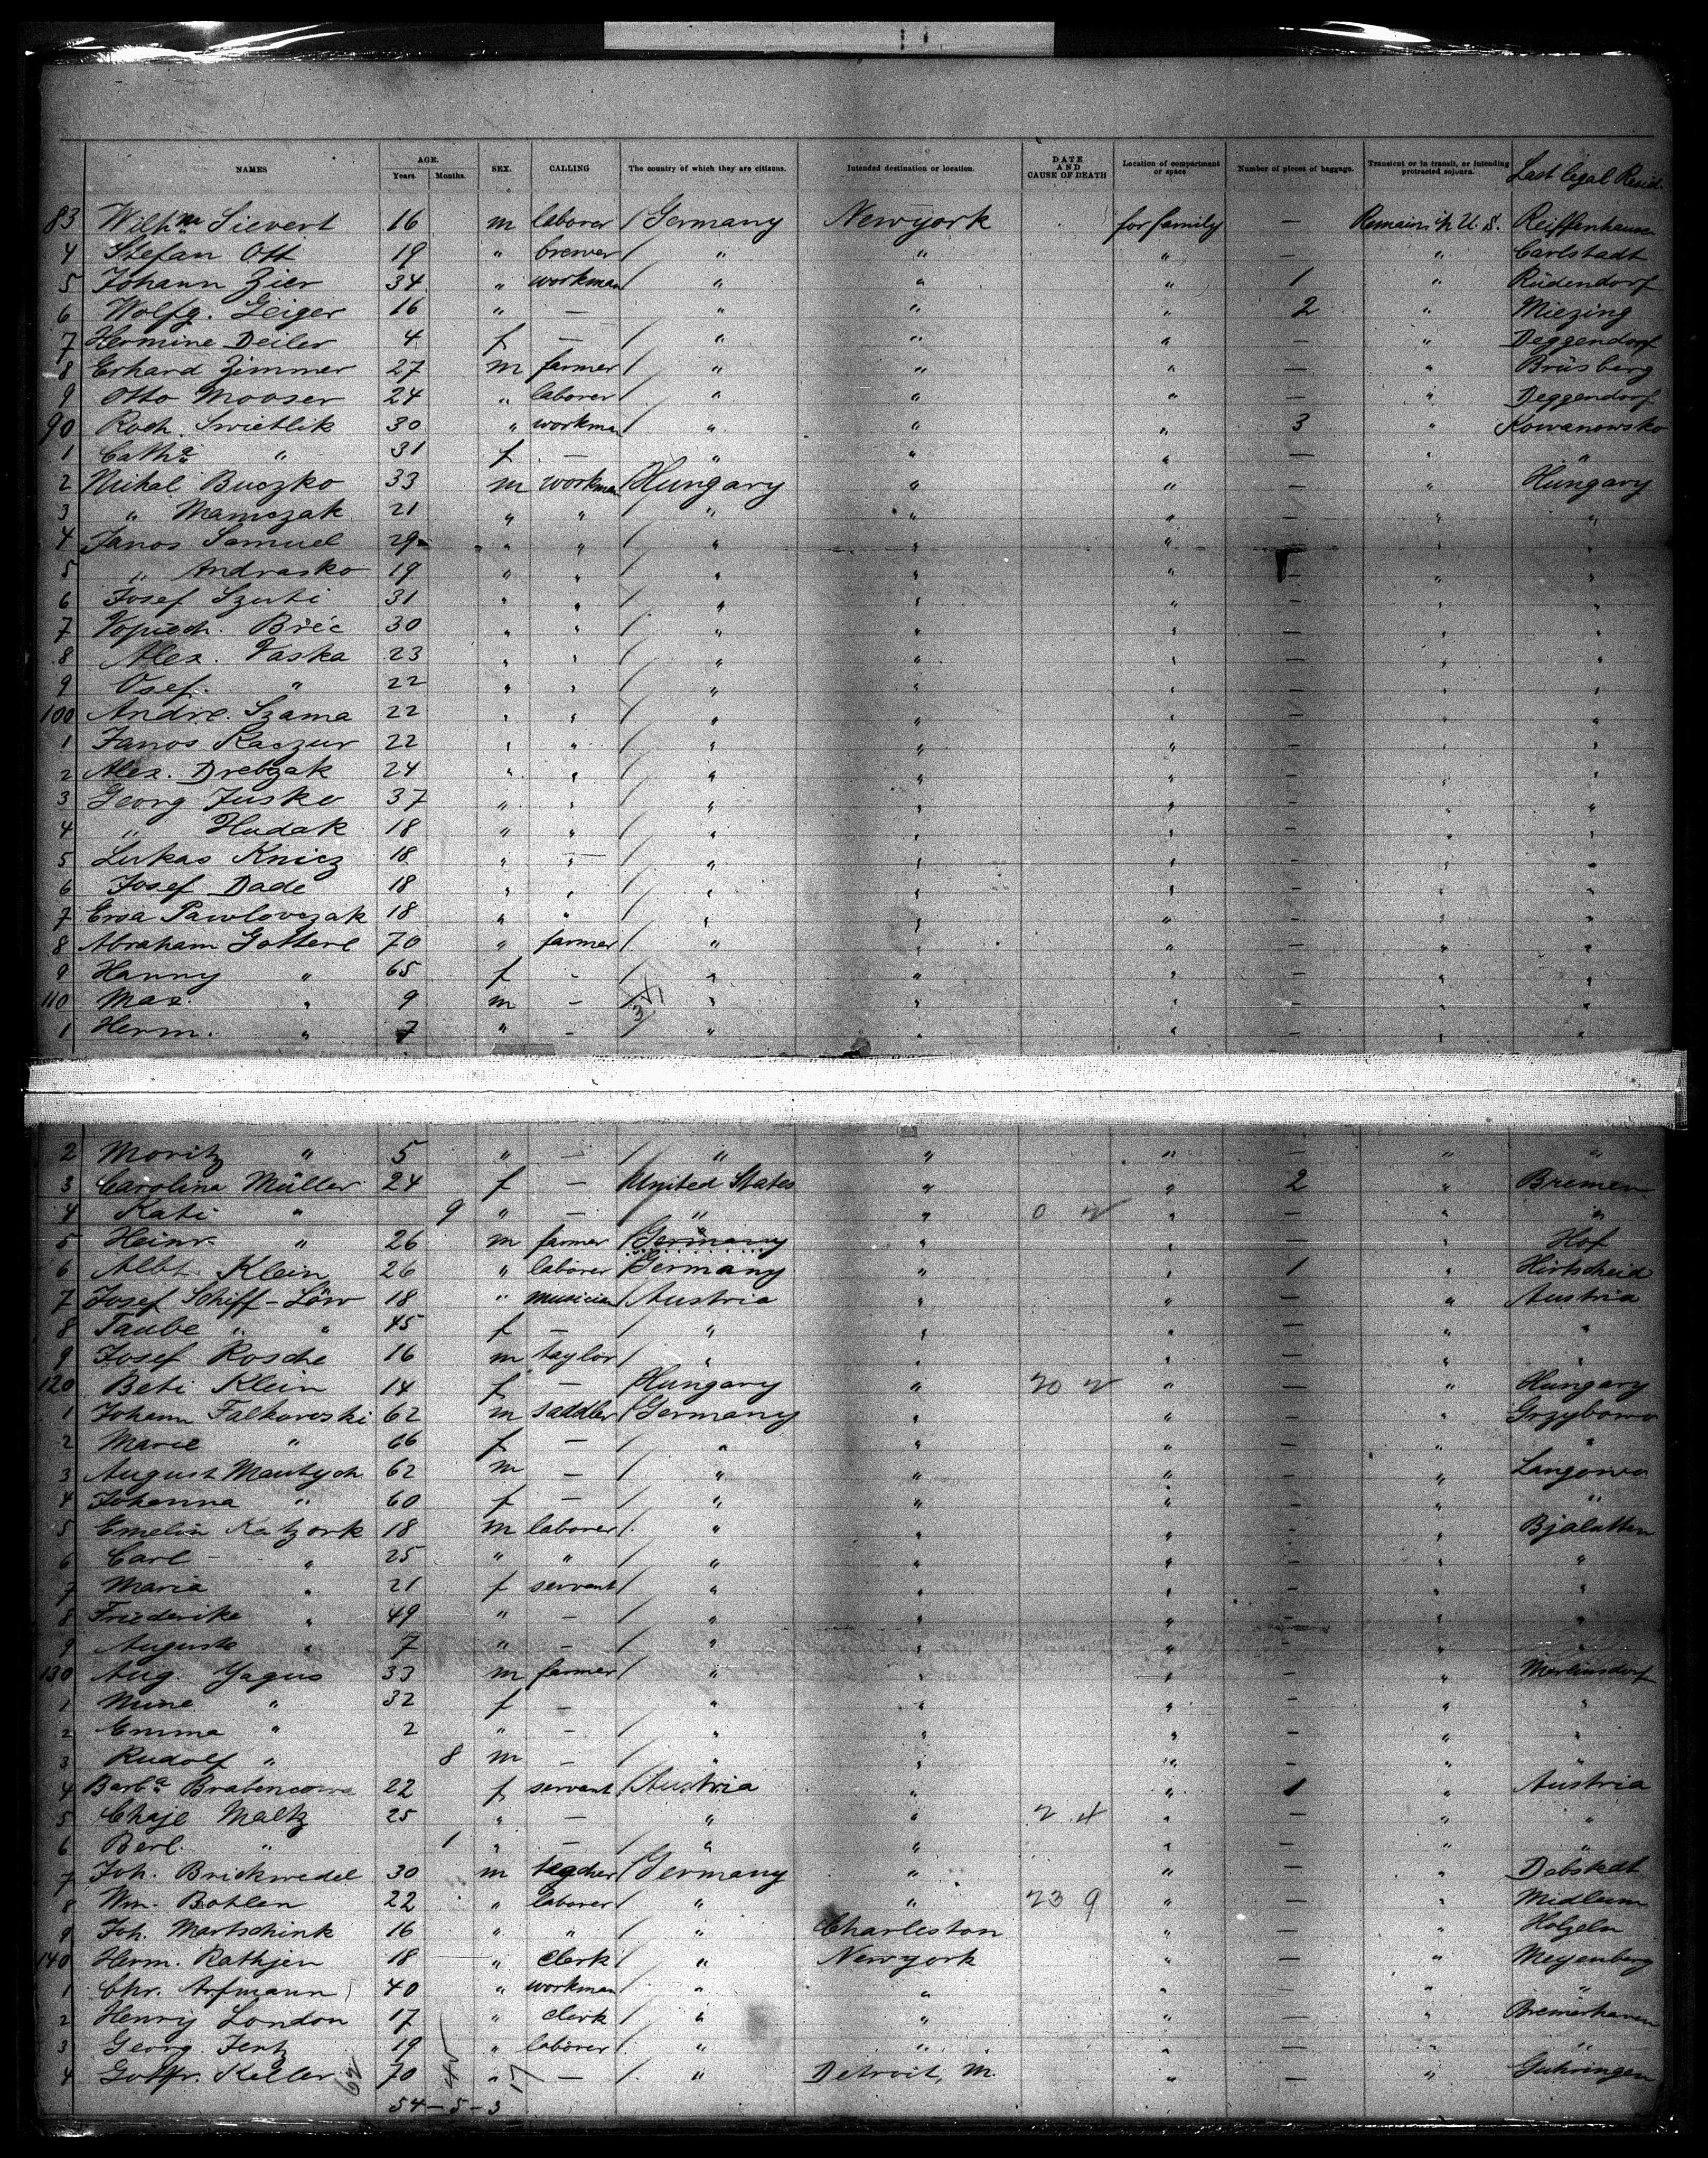 NAMES AGE. Years. Months. SEX. CALLING The country of which they are citizens. Intended destination or location. DATE AND CAUSE OF DEATH Location of compartment or space Number of pieces of baggage. Transient or in transit, or intending protracted sojourn. Last legal Resid.
83 Wilhna Sievert 16 m laborer / Germany Newyork for family — Remain in U. S. Reiffenhausen
4 Stefan Ott 19 " brewer / " " " — " Carlstadt
5 Johann Zier 34 " workman / " " " 1 " Rüdendorf
6 Wolfg. Geiger 16 " — " " " 2 " Miezing
7 Hermine Deiler 4 f — / " " " — " Deggendorf
8 Erhard Zimmer 27 m farmer / " " " — " Brüsberg
9 Otto Mooser 24 " laborer / " " " — " Deggendorf
90 Roch. Swietlik 30 " workman / " " " 3 " Kowanowsko
1 Catha " 31 f — " " " — " "
2 Mihal Buczko 33 m workman / Hungary " " — " Hungary
3 " Mamczak 21 " " " " " — " "
4 Janos Samuel 29 " " / " " " " "
5 " Andrasko 19 " " / " " " — " "
6 Josef Szuti 31 " " / " " " — " "
7 30 " " / " " " — " "
8 Alex. Vaska 23 " " / " " " — " "
9 Osef. " 22 " " / " " " — " "
100 Andre. Szama 22 " " / " " " — " "
1 Janos Kaczur 22 " " / " " " — " "
2 Alex. Drebzak 24 " " / " " " — " "
3 Georg Jusko 37 " " / " " " — " "
4 " Hudak 18 " " / " " " — " "
5 Lukas Knicz 18 " " / " " " — " "
6 Josef Dade 18 " " / " " " — " "
7 Pawlovczak 18 " " / " " " — " "
8 Abraham Gotterl 70 " farmer / " " " — " "
9 Hanny " 65 f - / " " " — " "
110 Max. " 9 m - / " " " — " "
1 Herm. " 7 " - / " " " — " "
2 Moritz " 5 " — / " " " — " "
3 Carolina Müller 24 f — United States " " 2 " Bremen
4 Kati " 9 " — / " " " — " "
5 Heinr. " 26 m farmer / Germany " " — " Hof
6 Albt. Klein 26 " laborer / Germany " " 1 " Hirtscheid
7 Josef Schiff-Löw 18 " musician / Austria " " — " Austria
8 Taube " " 45 f — / " " " — " "
9 Josef Rosche 16 m taylor / " " " — " "
120 Beti Klein 14 f — / Hungary " " — " Hungary
1 Johann Falkowski 62 m saddler / Germany " " — " Grzybowo
2 Marie " 66 f — / " " " — " "
3 August Mautych 62 m — / " " " — " Langowo
4 Johanna " 60 f — / " " " — " "
5 Emelin Katzork 18 m laborer / " " " — " Bjalutten
6 Carl " 25 " " / " " " — " "
7 Maria " 21 f servant / " " " — " "
8 Friederike " 49 " — / " " " — " "
9 Auguste " 7 " — / " " " — " "
130 Aug. Yagus 33 m farmer / " " " — "
1 Mine " 32 f — " " " — " "
2 Emma " 2 " — / " " " — " "
3 Rudolf " 8 m — / " " " — " "
4 Barba Brabencowa 22 f servant / Austria " " 1 " Austria
5 Chaje Maltz 25 " — " " " — " "
6 Berl. " 1 " — / " " " — " "
7 Joh. Brickwedel 30 m teacher / Germany " " — " Debstedt
8 Wm. Bohlen 22 " laborer / " " 23 9 " — " Midlum
9 Joh. Martschink 16 " " / " Charleston " — " Holzeln
140 Herm. Rathjen 18 " clerk / " Newyork " — " Meyenburg
1 Chr. Arfmann 40 " workman / " " " — " "
2 Henry London 17 " clerk / " " " — " Bremerhaven
3 Georg. Jentz 19 " laborer / " " " — " "
4 Gottfr. Keller 70 " — / " Detroit, M. " — "
54 - 5 - 3